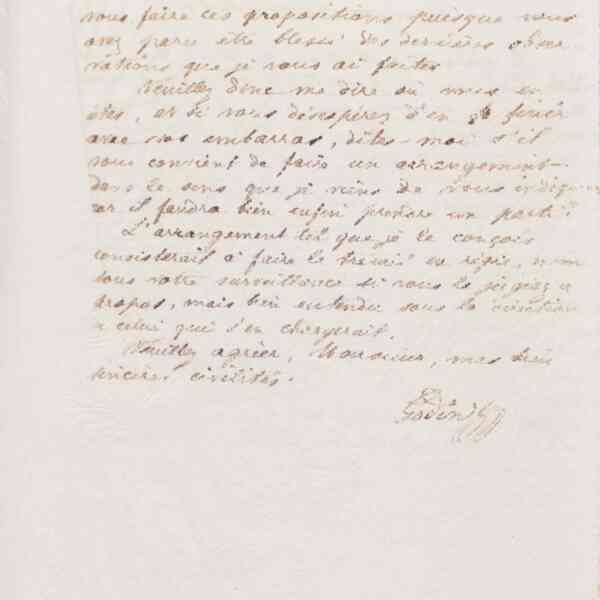 vous faire ces propositions puisque vous
avez paru être blessé des dernières obser
vations que je vous ai faites
Veuillez donc me dire où vous en
êtes, et si vous désespérez d'en finir
avec vos embarras, dites-moi s'il
vous convient de faire un arrangement
dans le sens que je viens de vous indiquer
car il faudra bien enfin prendre un parti.
L'arrangement tel que je le conçois
consisterait à faire le travail en régie,
sous votre surveillance si vous le jugiez à
propos, mais bien entendu sous la direction
de celui qui s'en chargerait.
Veuillez agréer, Monsieur, mes bien
sincères civilités.
Godin